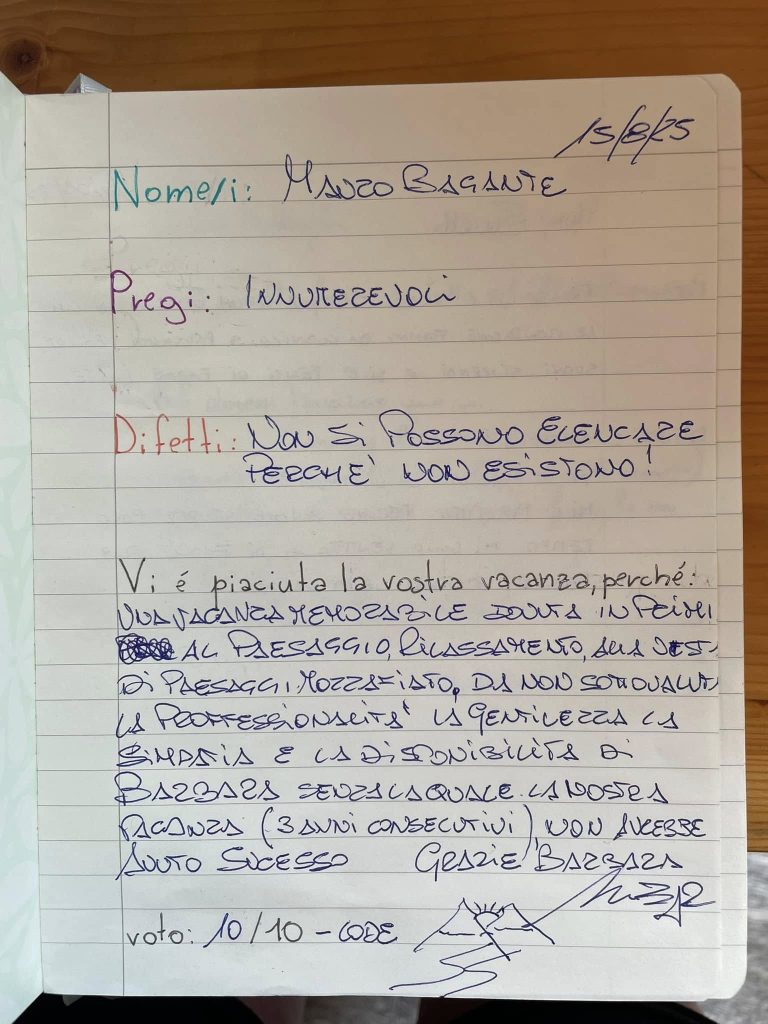 15/8/25
Nome/i: MAURO BAGANTE
Pregi: INNUMEREVOLI
Difetti: NON SI POSSONO ELENCARE
PERCHE' NON ESISTONO!
Vi é piaciuta la vostra vacanza, perché:
UNA VACANZA MEMORABILE DOVUTA IN PRIMI
AL PAESAGGIO, RILASSAMENTO, ALLA VISTA
DI PAESAGGI MOZZAFIATO, DA NON SOTTOVALUTA
LA PROFFESSIONALITA' LA GENTILEZZA LA
SIMPATIA E LA DISPONIBILITA DI
BARBARA SENZA LA QUALE LA NOSTRA
VACANZA (3 ANNI CONSECUTIVI) NON AVREBBE
AVUTO SUCESSO GRAZIE BARBARA
voto: 10/10 - LODE